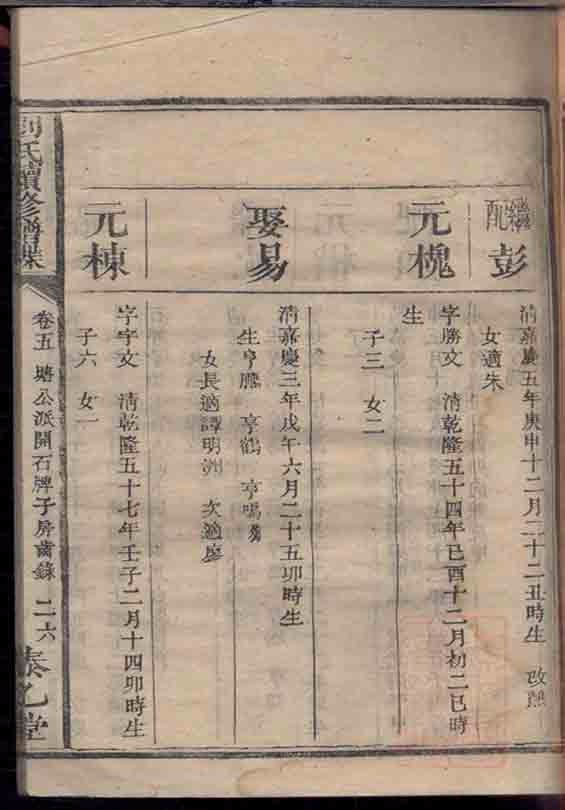 繼配 彭
清嘉慶五年庚申十二月二十二丑時生 改熙
女適朱
元槐
字勝文 清乾隆五十四年己酉十二月初二巳時
生
子三 女二
娶易
清嘉慶三年戊午六月二十五卯時生
生亨騰 亨鶴 亨鳴
女長適譚明洲 次適廖
元棟
字宇文 清乾隆五十七年壬子二月十四卯時生
子六 女一
劉氏續修譜牒
卷五 塘公派開石牌子房齒錄 二六
泰乙堂